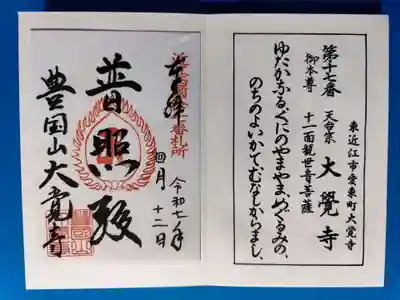 東近江市愛東町大覚寺
第十七番 天台宗 大覺寺
御本尊 十一面観世音菩薩
ゆたかなる、くにのやまやま、めぐるみの、
のちのよいかで、むなしからまし、
令和七年
四月十二日
奉拝
普照殿
豊国山大覚寺